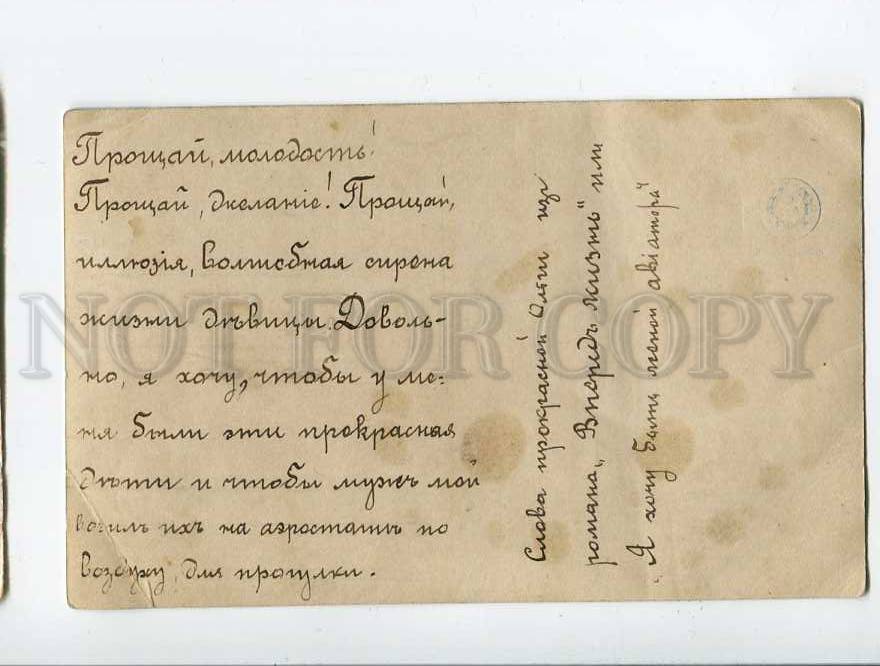 Прощай, молодость!
Прощай, желанiе! Прощай,
иллюзiя, волшебная сирена
жизни дѣвицы. Доволь-
но, я хочу, чтобы у ме-
ня были эти прекрасная
дѣти и чтобы мужъ мой
возилъ ихъ на аэростатѣ по
воздуху, для прогулки.
Слова прекрасной Ольги изъ
романа „Впередъ жизнь" или
„Я хочу быть женой авiатора"
NOT FOR COPY